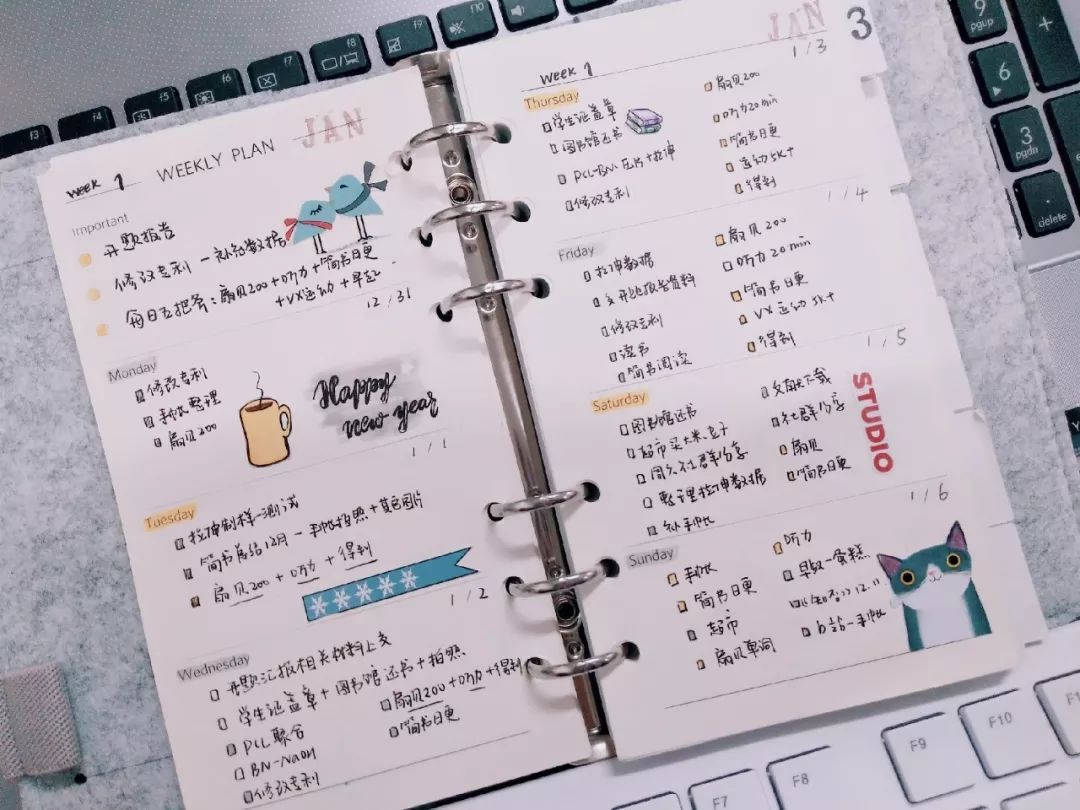 week 1 WEEKLY PLAN JAN
Important
开题报告
修改专利 — 补充数据
每日五把斧：扇贝200 + 听力 + 简书日更
+ VX运动 + 早起
12/31
Monday
修改专利
手帐整理
扇贝200
Happy
new year
1/1
Tuesday
拉伸制样—测试
简书总结12月 — 手帐拍照 + 其它图片
扇贝200 + 听力 + 得到
1/2
Wednesday
开题汇报相关材料上交
学生证盖章 + 图书馆还书 + 拍照
PCL聚合
扇贝200 + 听力 + 得到
BN-NaOH
简书日更
修改专利
JAN 3
week 1
1/3
Thursday
学生证盖章
图书馆还书
PCL-BN 压片 + 拉伸
修改专利
扇贝200
听力20min
简书日更
运动5k+
得到
1/4
Friday
拉伸数据
交开题报告资料
修改专利
读书
简书阅读
扇贝200
听力20min
简书日更
VX运动5k+
得到
1/5
Saturday
图书馆还书
超市买大米盒子
周六社群分享
整理拉伸数据
补手帐
文献下载
社群分享
扇贝
简书日更
STUDIO
1/6
Sunday
手帐
简书日更
超市
扇贝单词
听力
早饭—蛋糕
12.11
B站—手帐
f3
f4
f5
f6
f7
f8
f9
f10
9
pgup
+
6
3
pgdn
delete
F7
F8
F9
F10